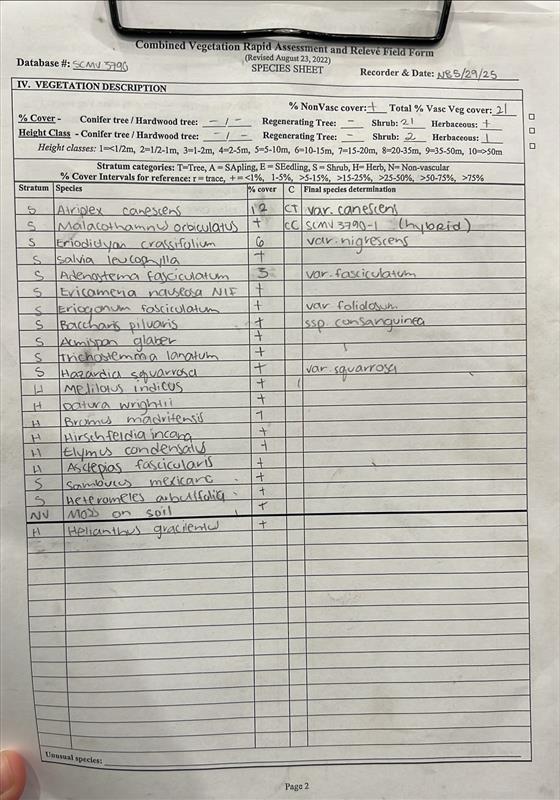 Combined Vegetation Rapid Assessment and Relevé Field Form
(Revised August 23, 2022)
Database #: SCMV 3790 SPECIES SHEET Recorder & Date: NB 5/29/25
IV. VEGETATION DESCRIPTION
% NonVasc cover: + Total % Vasc Veg cover: 21
% Cover - Conifer tree / Hardwood tree: - / - Regenerating Tree: - Shrub: 21 Herbaceous: +
Height Class - Conifer tree / Hardwood tree: - / - Regenerating Tree: - Shrub: 2 Herbaceous: 1
Height classes: 1=<1/2m, 2=1/2-1m, 3=1-2m, 4=2-5m, 5=5-10m, 6=10-15m, 7=15-20m, 8=20-35m, 9=35-50m, 10=>50m
Stratum categories: T=Tree, A = SApling, E = SEedling, S = Shrub, H= Herb, N= Non-vascular
% Cover Intervals for reference: r = trace, + = <1%, 1-5%, >5-15%, >15-25%, >25-50%, >50-75%, >75%
Stratum Species % cover C Final species determination
S Atriplex canescens 12 CT var. canescens
S Malacothamnus orbiculatus + CC SCMV 3790-1 (hybrid)
S Eriodictyon crassifolium 6 var. nigrescens
S Salvia leucophylla +
S Adenostema fasciculatum 3 var. fasciculatum
S Ericameria nauseosa NIF +
S Eriogonum fasciculatum + var foliolosum
S Baccharis pilularis + ssp. consanguinea
S Acmispon glaber +
S Trichostemma lanatum +
S Hazardia squarrosa + var. squarrosa
H Melilotus indicus +
H Datura wrightii +
H Bromus madritensis +
H Hirschfeldia incana +
H Elymus condensatus +
H Asclepias fascicularis +
S Sambucus mexicana +
S Heteromeles arbutifolia +
NV Moss on soil +
H Helianthus gracilentus +
Unusual species:
Page 2